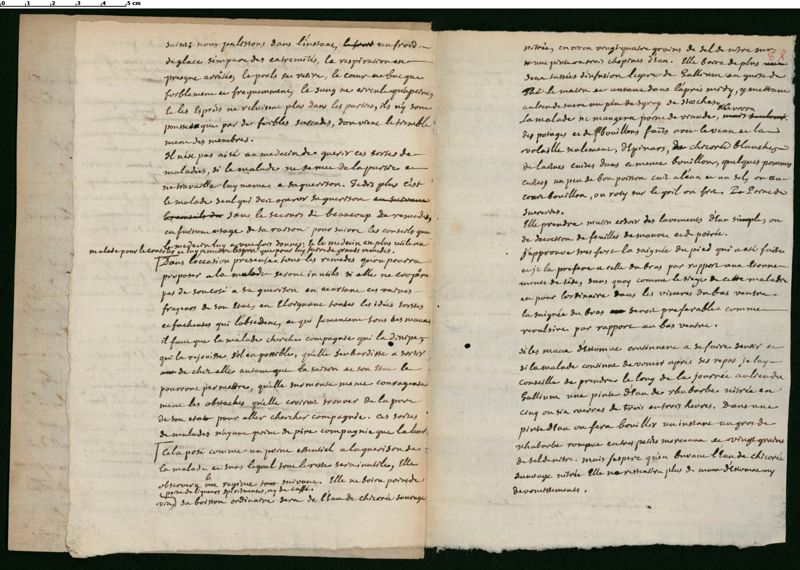 0 1 2 3 4 5 cm
suite; nous palissons dans l'instant, un froid
de glace s'empare des extremités, la respiration est
presque arrêtée, le pouls se retire, le coeur ne bat que
foiblement et frequemment, le sang ne circule qu'a peine,
et les Esprits ne reluisent plus dans les parties, ils n'y sont
poussés que par de foibles saccades, d'ou vient le tremble
ment des membres.
Il n'est pas aisé au medecin de guerir ces sortes de
maladies, si le malade ne s'en mele de la partie et
ne travaille luy meme a sa guerison. Je dis plus c'est
le malade seul qui doit operer sa guerison
sans le secours de beaucoup de remedes,
en faisant usage de sa raison pour suivre les conseils que
le medecin luy a donnés; le medecin est plus utile au
malade pour le consoler et luy remettre l'esprit que pour luy faire de grands remedes.
Dans l'occasion presente tous les remedes qu'on pourra
proposer a la malade seront inutils si elle ne coopere
pas de son coté a sa guerison en ecartant ces vaines
frayeurs de son Etat, en Eloignant toutes les idées tristes
et facheuses qui l'obsedent, et qui fomentent tous ses maux
il faut que la malade cherche compagnie qui la dissipe,
qui la rejouisse s'il est possible, qu'elle s'enhardisse a sortir
de chez elle autant que la saison et son Etat le
pourront permettre, qu'elle surmonte meme courageuse
ment les obstacles qu'elle croiroit trouver de la part
de son etat pour aller chercher compagnie. Ces sortes
de malades n'ayant point de pire compagnie que la leur.
Cela posé comme un point essentiel a la guerison de
la malade et sans lequel tout le reste sera inutile, Elle
observera un regime suivant. Elle ne boira point de
vin, point de liqueurs spiritueuses, ny de caffé.
sa boisson ordinaire sera de l'Eau de chicorée sauvage
nitrée, environ vingt quatre grains de sel de nitre sur
une pinte ou trois chopines d'eau. Elle boira de plus
deux tasses d'infusion legere de Gallium en guise de
Thé le matin et autant dans l'aprés midy, y mettant
au lieu de sucre un peu de syrop de stoechas.
La malade ne mangera point de viande, vivra
des potages et de bouillons faits avec le veau et la
volaille seulement, d'Epinars, de chicorée blanche,
de laitues cuites dans ce meme bouillon, quelques pommes
cuites, un peu de bon poisson cuit a l'eau et au sel, ou au
court bouillon, ou roty sur le gril ou frit. point de
sucreries.
Elle prendra matin et soir des lavements d'eau simple, ou
de decoction de feuilles de mauve et de poirée.
j'approuve tres fort la saignée du pied qui a eté faite
et je la prefere a celle du bras par rapport aux Etonne
ments de tetes, sans quoy comme le siege de cette maladie
est pour l'ordinaire dans les visceres du bas ventre
la saignée du bras seroit preferable comme
revulsive par rapport au bas ventre.
si les maux d'Estomac continuent a se faire sentir et
si la malade continue de vomir aprés ses repas je luy
conseille de prendre le long de la journée au lieu du
Gallium une pinte d'Eau de rhubarbe nitrée en
cinq ou six verres de trois en trois heures. Dans une
pinte d'eau on fera bouillir un instant un gros de
rhubarbe rompue en tres petits morceaux et vingt grains
de sel de nitre. mais j'espere qu'en buvant l'Eau de chicorée
sauvage nitrée Elle ne ressentira plus de maux d'Estomac ny
de vomissements.